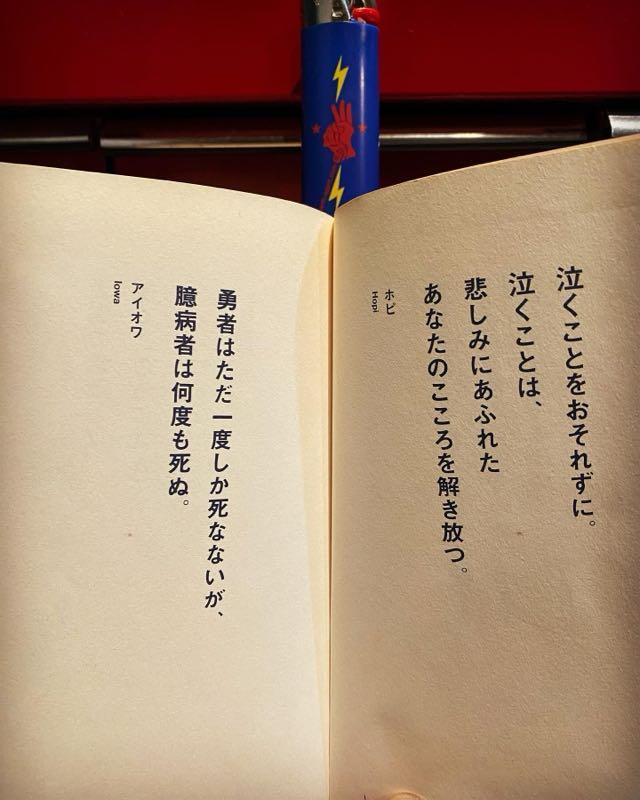 泣くことをおそれずに。
泣くことは、
悲しみにあふれた
あなたのこころを解き放つ。
ホピ
Hopi
勇者はただ一度しか死なないが、
臆病者は何度も死ぬ。
アイオワ
Iowa